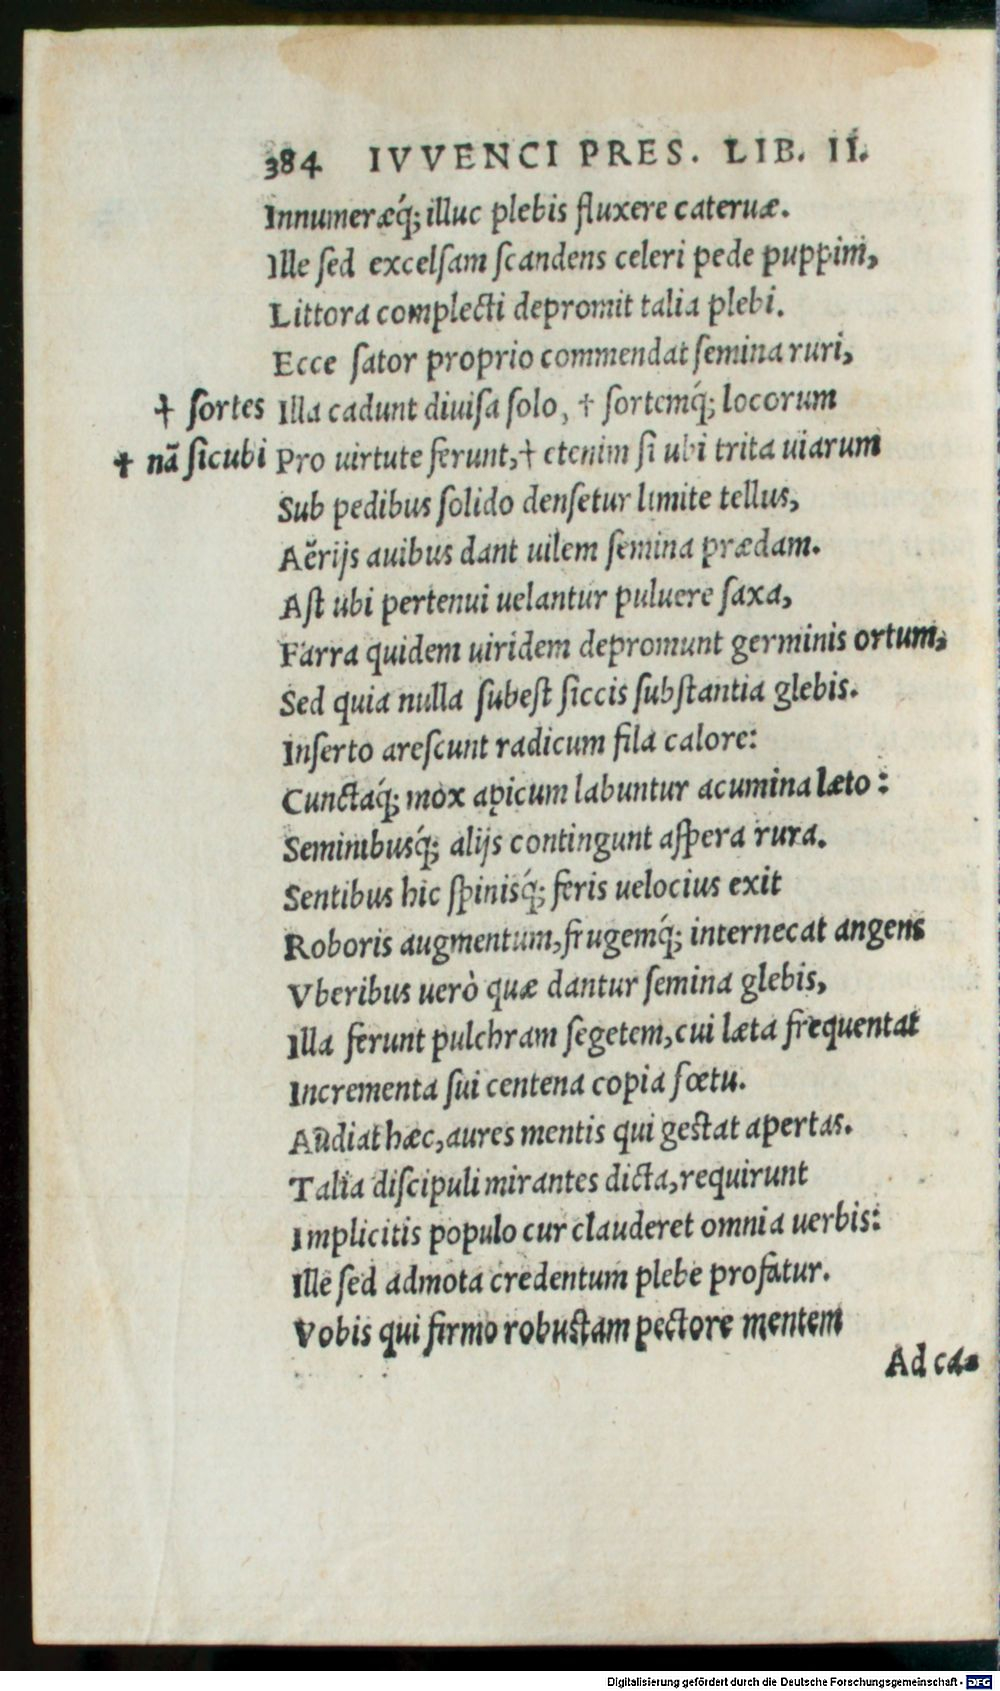 384 IVVENCI PRES. LIB. II.
Innumeræq́; illuc plebis fluxere cateruæ.
Ille ſed excelſam ſcandens celeri pede puppim,
Littora complecti depromit talia plebi.
Ecce ſator proprio commendat ſemina ruri,
† ſortes Illa cadunt diuiſa ſolo, † ſortemq́; locorum
† nã ſicubi Pro uirtute ferunt, † etenim ſi ubi trita uiarum
Sub pedibus ſolido denſetur limite tellus,
Aërijs auibus dant uilem ſemina prædam.
Aſt ubi pertenui uelantur puluere ſaxa,
Farra quidem uiridem depromunt germinis ortum,
Sed quia nulla ſubeſt ſiccis ſubſtantia glebis.
Inſerto areſcunt radicum fila calore:
Cunctaq́; mox apicum labuntur acumina læto:
Seminibusq́; alijs contingunt aſpera rura.
Sentibus hic ſpinisq́; feris uelocius exit
Roboris augmentum, frugemq́; internecat angens
Vberibus uerò quæ dantur ſemina glebis,
Illa ferunt pulchram ſegetem, cui læta frequentat
Incrementa ſui centena copia fœtu.
Audiat hæc, aures mentis qui geſtat apertas.
Talia diſcipuli mirantes dicta, requirunt
Implicitis populo cur clauderet omnia uerbis:
Ille ſed admota credentum plebe profatur.
Vobis qui firmo robuſtam pectore mentem
Ad cæ-
Digitalisierung gefördert durch die Deutsche Forschungsgemeinschaft - DFG